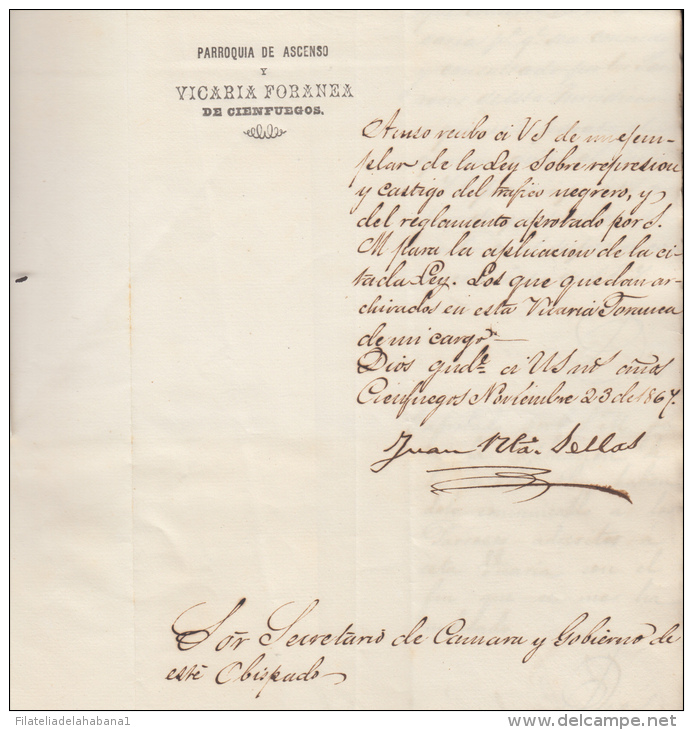 PARROQUIA DE ASCENSO
Y
VICARIA FORANEA
DE CIENFUEGOS.
Acuso recibo á VS de un ejem-
plar de la Ley sobre represion
y castigo del trafico negrero, y
del reglamento aprobado por S.
M para la aplicacion de la ci-
tada Ley. Los que quedan ar-
chivados en esta Vicaria Foranea
de mi cargo
Dios gude á US ms años
Cienfuegos Noviembre 23 de 1867.
Juan Sellas
Sor Secretario de Camara y Gobierno de
este Obispado
Filateliadelahabana1
delcampe.net